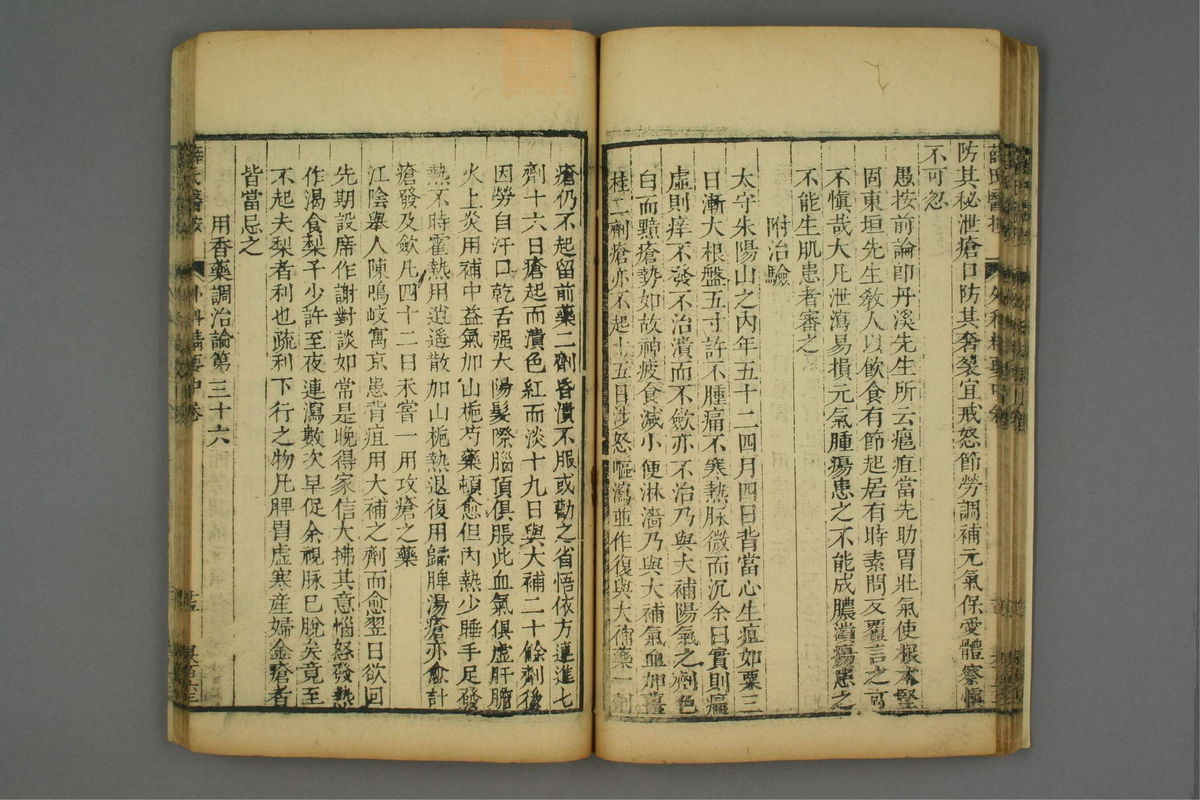 防其秘泄瘡口防其奢裂宜戒怒節勞調補元氣保愛體察愼
不可忽
愚按前論即丹溪先生所云癰疽當先助胃壯氣使根本堅
固東垣先生敎人以飲食有節起居有時素問反覆言之可
不愼哉大凡泄瀉易損元氣腫瘍患之不能成膿潰瘍患之
不能生肌患者審之
附治驗
太守朱陽山之内年五十二四月四日背當心生疽如粟三
日漸大根盤五寸許不腫痛不寒熱脉微而沉余曰實則痛
虛則痒不發不治潰而不斂亦不治乃與大補陽氣之劑色
白而黯瘡勢如故神疲食減小便淋濇乃與大補氣血加薑
桂二劑瘡亦不起十五日涉怒嘔瀉並作復與大補藥一劑
瘡仍不起留前藥二劑昏潰不服或勸之省悟依方連進七
劑十六日瘡起而潰色紅而淡十九日與大補二十餘劑後
因勞自汗口乾舌强太陽髮際腦頂俱脹此血氣俱虛肝膽
火上炎用補中益氣加山梔芍藥頓愈但内熱少睡手足發
熱不時霍熱用逍遥散加山梔熱退復用歸脾湯瘡亦愈計
瘡發及斂凡四十二日未嘗一用攻瘡之藥
江陰舉人陳鳴岐寓京患背疽用大補之劑而愈翌日欲回
先期設席作謝對談如常是晚得家信大拂其意惱怒發熱
作渴食梨子少許至夜連瀉數次早促余視脉已脫矣竟至
不起夫梨者利也疏利下行之物凡脾胃虛寒産婦金瘡者
皆當忌之
用香藥調治論第三十六
薛氏醫按
外科精要中卷